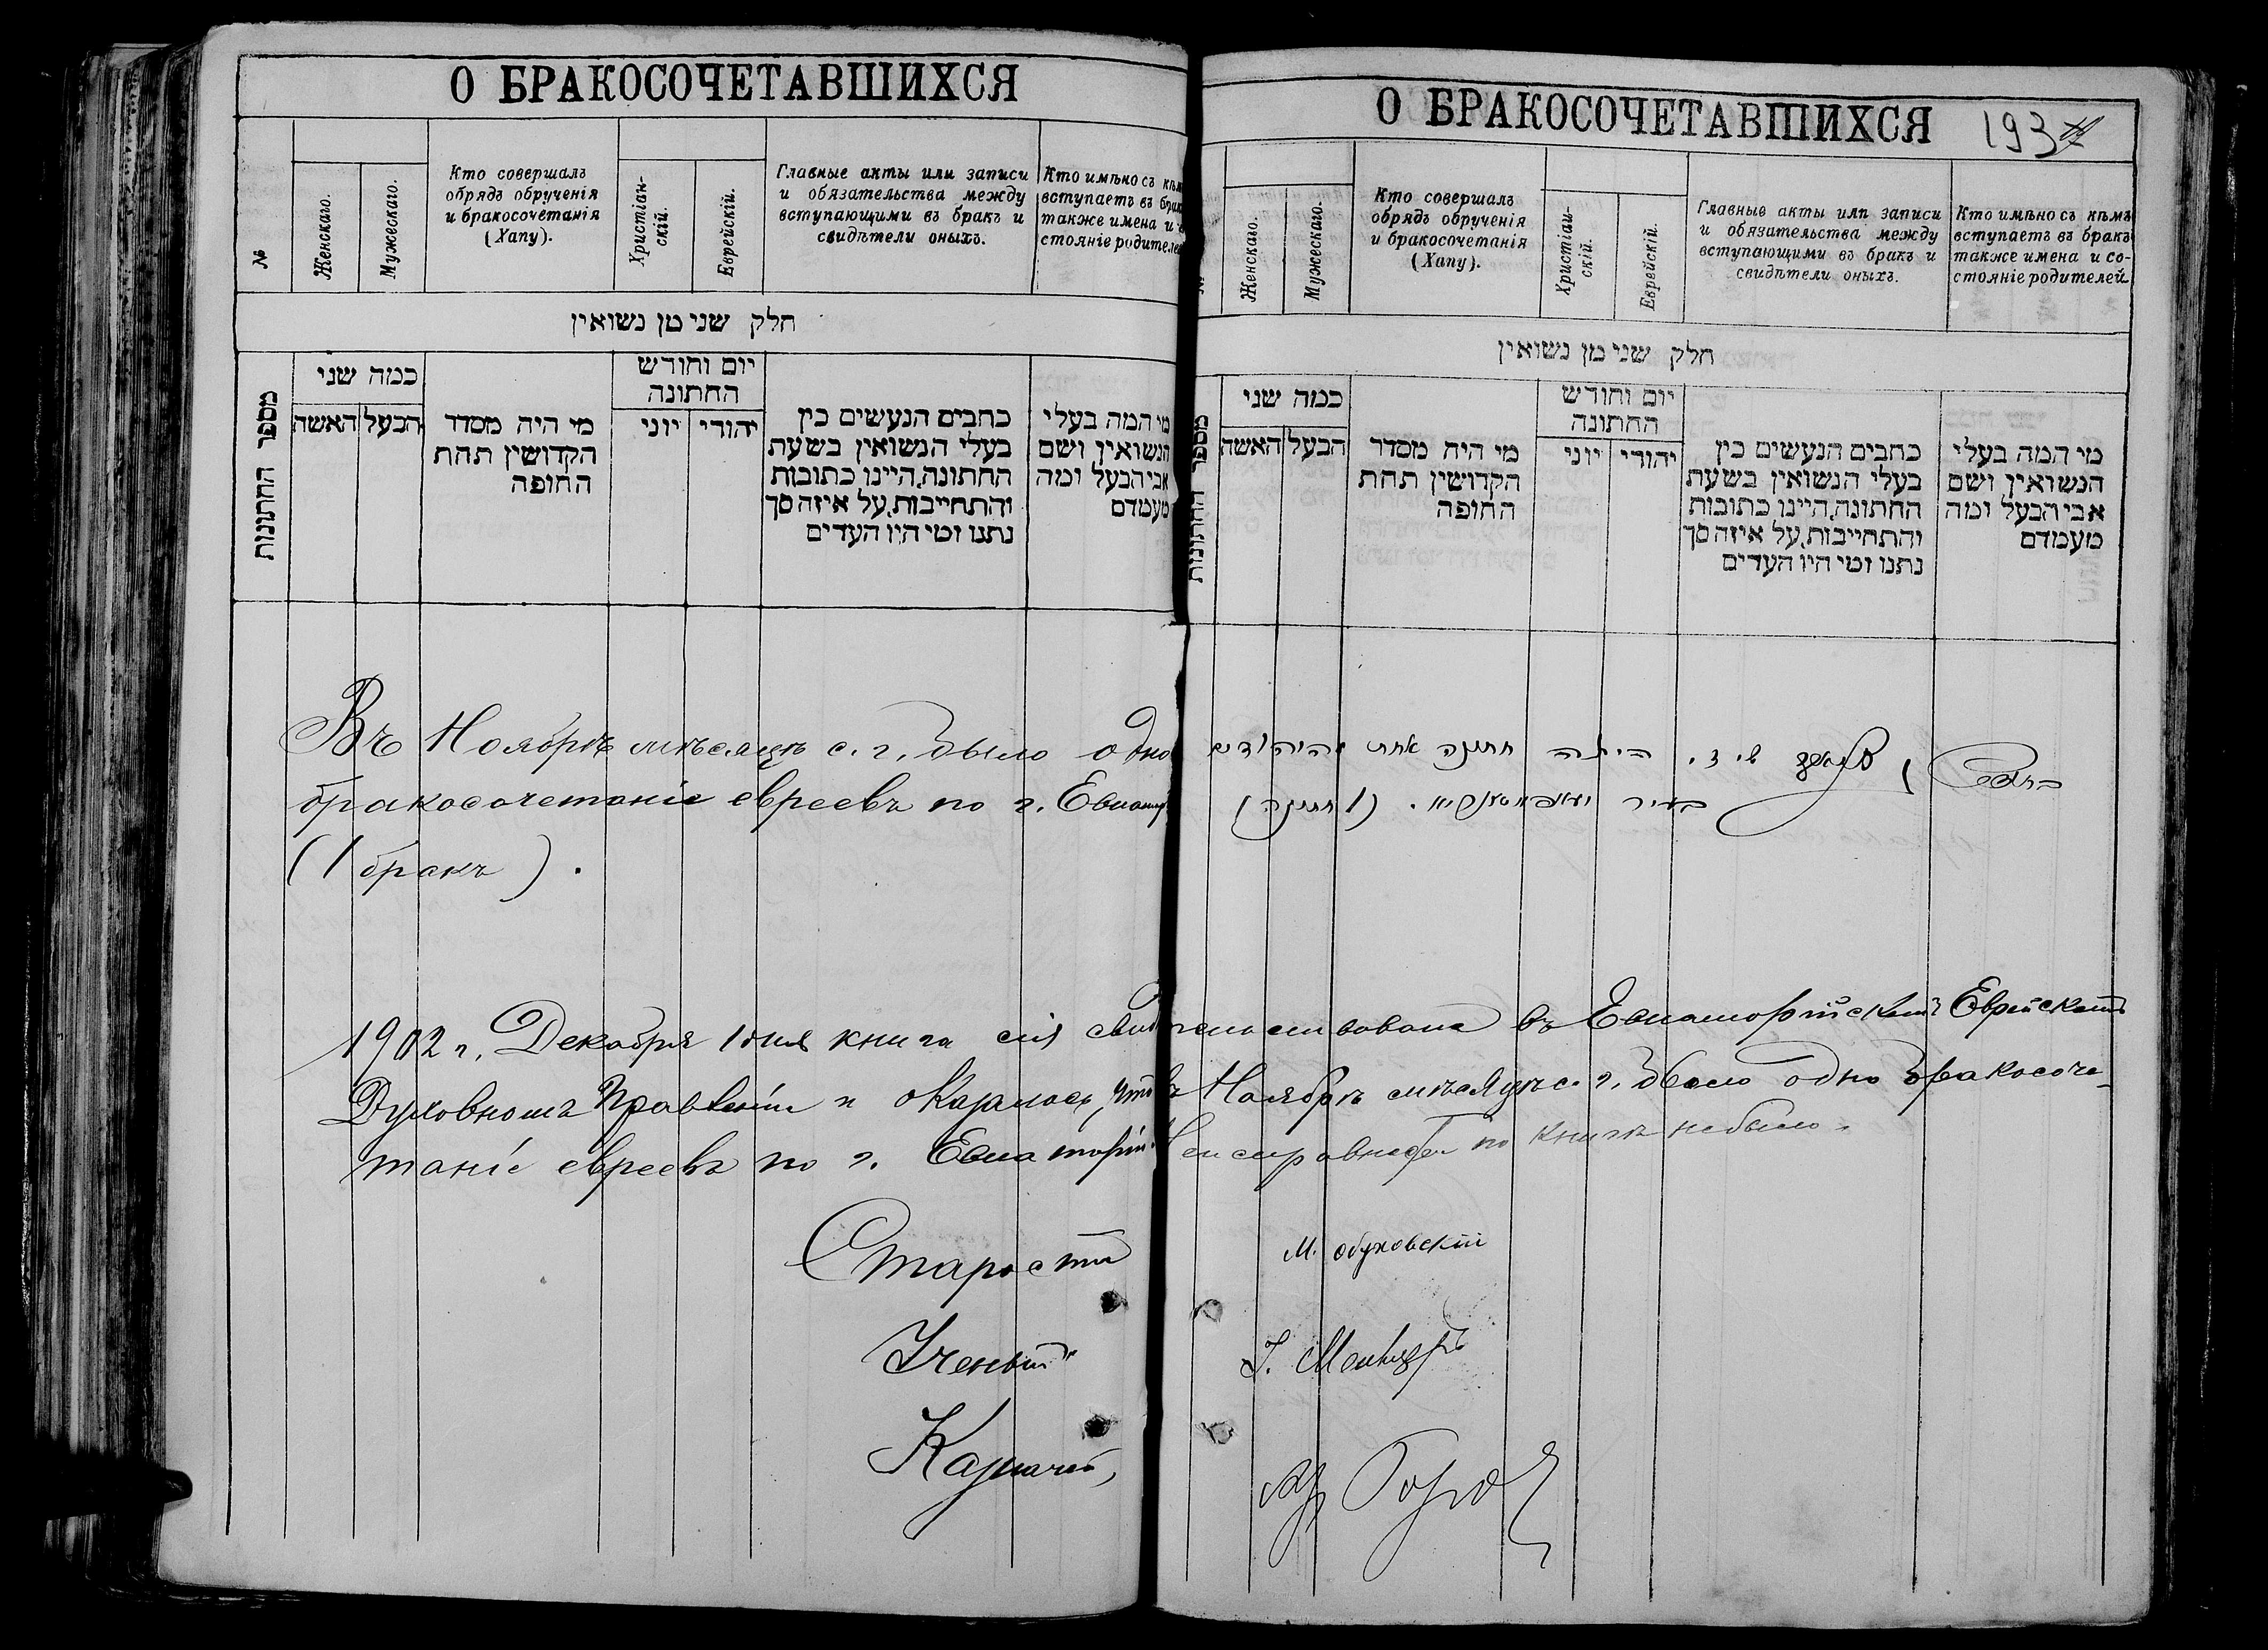 О БРАКОСОЧЕТАВШИХСЯ
№
Женскаго.
Мужескаго.
Кто совершалъ
обрядъ обрученія
и бракосочетанія
(Хапу).
Христіан-
скій.
Еврейскій.
Главные акты или записи
и обязательства между
вступающими въ бракъ и
свидѣтели оныхъ.
Кто имѣно съ кѣм
вступаетъ въ брак
также имена и с
стояніе родителе
חלק שני מן נשואין
מספר החתונות
כמה שני
האשה
הבעל
מי היה מסדר
הקדושין תחת
החופה
יום וחודש
החתונה
יוני
יהודי
כתבים הנעשים בין
בעלי הנשואין בשעת
החתונה, היינו כתובות
והתחייבות, על איזה סך
נתנו ומי היו העדים
מי המה בעלי
הנשואין ושם
אבי הבעל ומה
מעמדם
Въ Ноябрѣ мѣсяцѣ с. г. было одно
бракосочетаніе евреевъ по г. Евпатор
(1 бракъ).
О БРАКОСОЧЕТАВШИХСЯ
193
№
Женскаго.
Мужескаго.
Кто совершалъ
обрядъ обрученія
и бракосочетанія
(Хапу).
Христіан-
скій.
Еврейскій.
Главные акты или записи
и обязательства между
вступающими въ бракъ и
свидѣтели оныхъ.
Кто имѣно съ кѣмъ
вступаетъ въ бракъ
также имена и со-
стояніе родителей
חלק שני מן נשואין
מספר החתונות
כמה שני
האשה
הבעל
מי היה מסדר
הקדושין תחת
החופה
יום וחודש
החתונה
יוני
יהודי
כתבים הנעשים בין
בעלי הנשואין בשעת
החתונה, היינו כתובות
והתחייבות, על איזה סך
נתנו ומי היו העדים
מי המה בעלי
הנשואין ושם
אבי הבעל ומה
מעמדם
היתה חתונה אחת
בעיר (1 חתונה)
1902 г. Декабря 1 дня книга сія свидѣтельствована въ Евпаторійскомъ Еврейскомъ
Духовномъ Правленіи и оказалось, что въ Ноябрѣ мѣсяцѣ с. г. было одно бракосоче-
таніе евреевъ по г. Евпаторіи. Неисправностей по книгѣ не было.
Староста М. Обуховскій
Ученый І.
Казначей